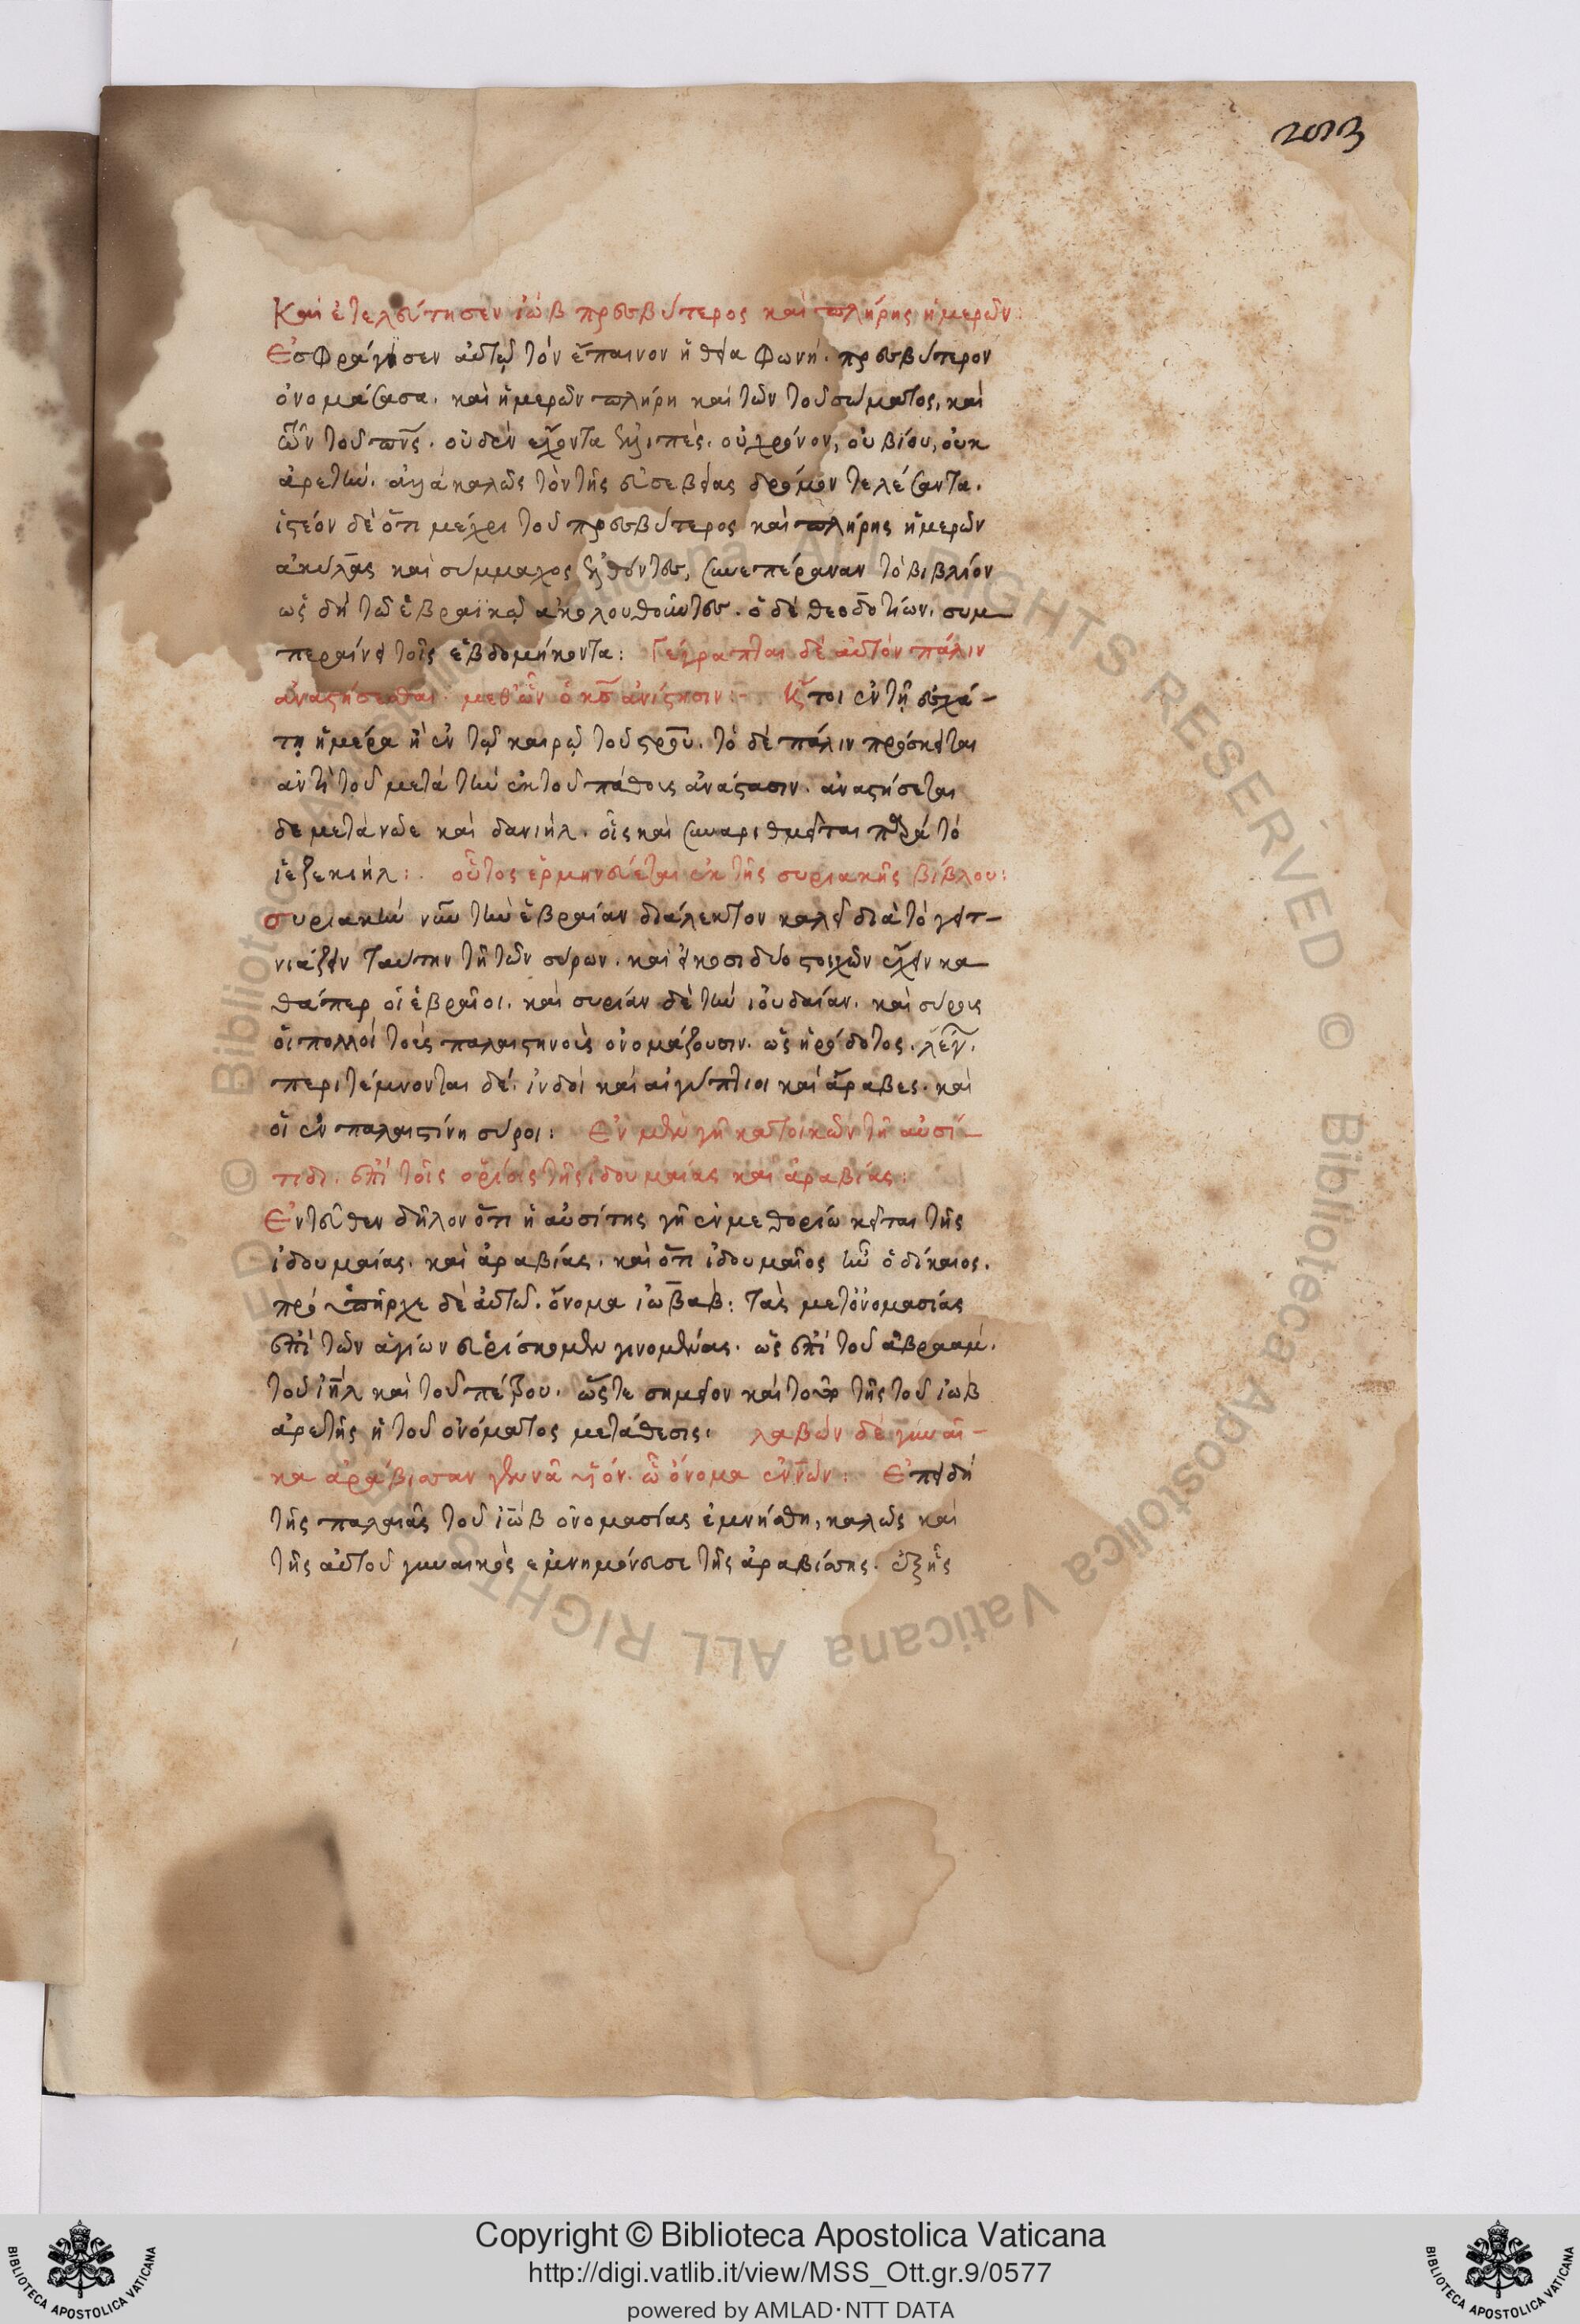 2013
Καὶ ἐτελεύτησεν ἰὼβ πρεσβύτερος καὶ πλήρης ἡμερῶν:
Ἐσφράγισεν αὐτῷ τὸν ἔπαινον ἡ θεία φωνὴ. πρεσβύτερον
ὀνομάσασα. καὶ ἡμερῶν πλήρη καὶ τῶν τοῦ σώματος, καὶ
τῶν τοῦ πνς. οὐδὲν ἔχοντα ἐλλιπὲς. οὐ χρόνον, οὐ βίου, οὐκ
ἀρετὴν. ἀλλὰ καλῶς τὸν τῆς εὐσεβείας δρόμον τελέσαντα.
ἰστέον δὲ ὅτι μέχρι τοῦ πρεσβύτερος καὶ πλήρης ἡμερῶν
ἀκύλας καὶ σύμμαχος ἐλθόντες, συνεπέραναν τὸ βιβλίον
ὡς δὴ τῷ ἑβραϊκῷ ἀκολουθοῦντες. ὁ δὲ θεοδοτίων. συμ
περαίνει τοῖς ἑβδομήκοντα: Γέγραπται δὲ αὐτὸν πάλιν
ἀναστήσεσθαι. μεθ' ὧν ὁ κς ἀνίστησιν:- Ἤτοι ἐν τῇ ἐσχά-
τῃ ἡμέρα ἢ ἐν τῷ καιρῷ τοῦ στρου. τὸ δὲ πάλιν πρόσκειται
ἀντὶ τοῦ μετὰ τὴν ἐκ τοῦ πάθους ἀνάστασιν. ἀναστήσεται
δε μετὰ νῶε καὶ δανιὴλ. οἷς καὶ συναριθμεῖται παρὰ τὸ
ἰεζεκιὴλ: οὗτος ἑρμηνεύεται ἐκ τῆς συριακῆς βίβλου:
συριακὴν νῦν τὴν ἑβραίαν διάλεκτον καλεῖ διὰ τὸ γειτ-
νιάζειν ταύτην τῇ τῶν σύρων. καὶ εἴκοσι δύο στοιχῶν ἔχειν κα
θάπερ οἱ ἑβραῖοι. καὶ συρίαν δὲ τὴν ἰουδαίαν. καὶ σύρους
οἱ πολλοὶ τοὺς παλαιστηνοὺς ὀνομάζουσιν. ὡς ἡρόδοτος. λέγ.
περιτέμνονται δέ. ἰνδοὶ καὶ αἰγύπτιοι καὶ ἄραβες. καὶ
οἱ ἐν παλαιστίνη σύροι: Ἐν μὲν γῆ κατοικῶν τῆ αὐσί-
τιδι. ἐπὶ τοῖς ὁρίοις τῆς ἰδουμαίας καὶ ἀραβίας:
Ἐντεῦθεν δῆλον ὅτι ἡ αὐσίτης γῆ ἐν μεθορίω κεῖται τῆς
ἰδουμαίας. καὶ ἀραβίας. καὶ ὅτι ἰδουμαῖος ἦν ὁ δίκαιος.
πρό ὑπῆρχε δὲ αὐτῶ. ὄνομα ἰωβαβ: Τὰς μετονομασίας
ἐπὶ τῶν ἁγίων εὑρίσκομεν γινομένας. ὡς ἐπὶ τοῦ ἀβραάμ.
τοῦ ἰηλ καὶ τοῦ πέτρου. ὥστε σημεῖον καὶ τοῦτο τῆς τοῦ ἰωβ
ἀρετῆς ἡ τοῦ ὀνόματος μετάθεσις. λαβὼν δὲ γυναῖ-
κα ἀράβισσαν γεννᾶ υἱόν. ὧ ὄνομα ἐννών: Ἐπειδὴ
τῆς παλαιᾶς τοῦ ἰὼβ ὀνομασίας ἐμνήσθη, καλῶς καὶ
τῆς αὐτοῦ γυναικὸς ἐμνημόνευσε τῆς ἀραβίσσης. ἐξῆς
Copyright © Biblioteca Apostolica Vaticana
http://digi.vatlib.it/view/MSS_Ott.gr.9/0577
powered by AMLAD·NTT DATA